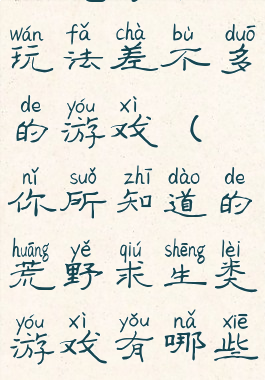 wán fǎ chà bù duō
玩法差不多
de yóu xì
的游戏（
nǐ suǒ zhī dào de
你所知道的
huāng yě qiú shēng lèi
荒野求生类
yóu xì yǒu nǎ xiē
游戏有哪些